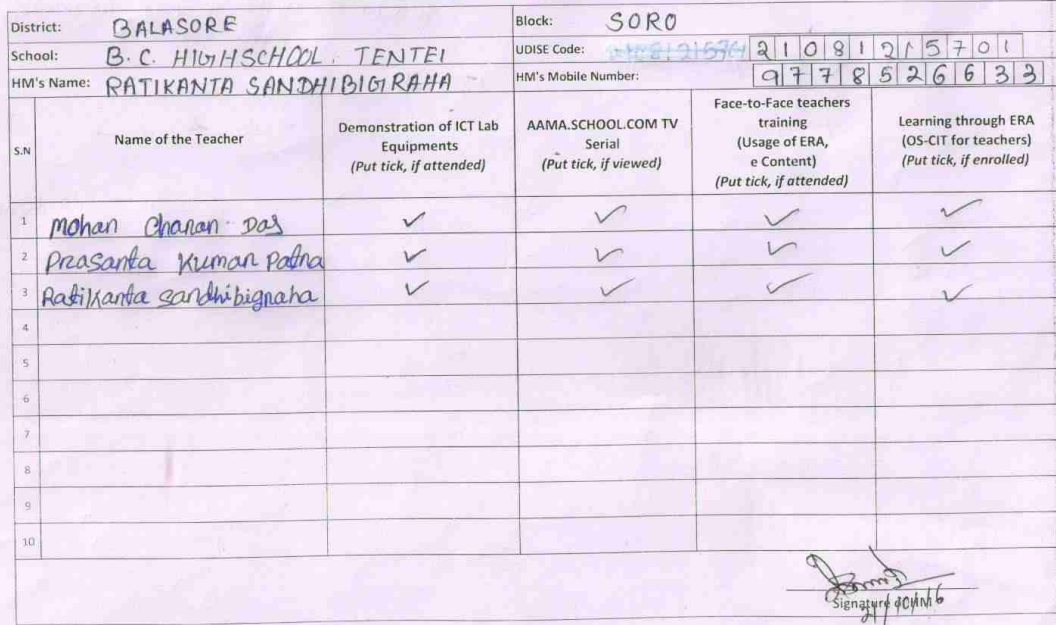 District: BALASORE Block: SORO
School: B.C. HIGHSCHOOL. TENTEI UDISE Code: 21081215701
HM's Name: RATIKANTA SANDHIBIGRAHA HM's Mobile Number: 9778526633
S.N Name of the Teacher Demonstration of ICT Lab Equipments (Put tick, if attended) AAMA.SCHOOL.COM TV Serial (Put tick, if viewed) Face-to-Face teachers training (Usage of ERA, e Content) (Put tick, if attended) Learning through ERA (OS-CIT for teachers) (Put tick, if enrolled)
1 Mohan Charan Das ✓ ✓ ✓ ✓
2 Prasanta Kumar Patra ✓ ✓ ✓ ✓
3 Ratikanta Sandhibigraha ✓ ✓ ✓ ✓
4
5
6
7
8
9
10
Signature